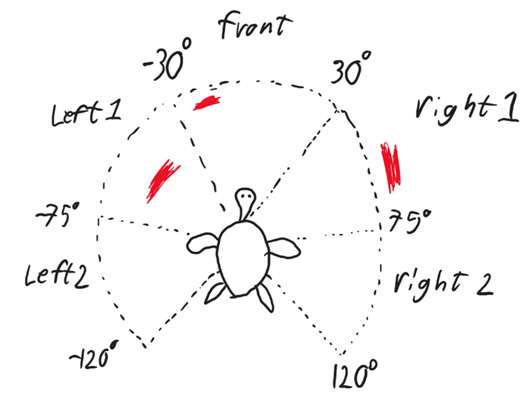 front
-30°
30°
Left 1
right 1
-75°
75°
Left2
right 2
-120°
120°